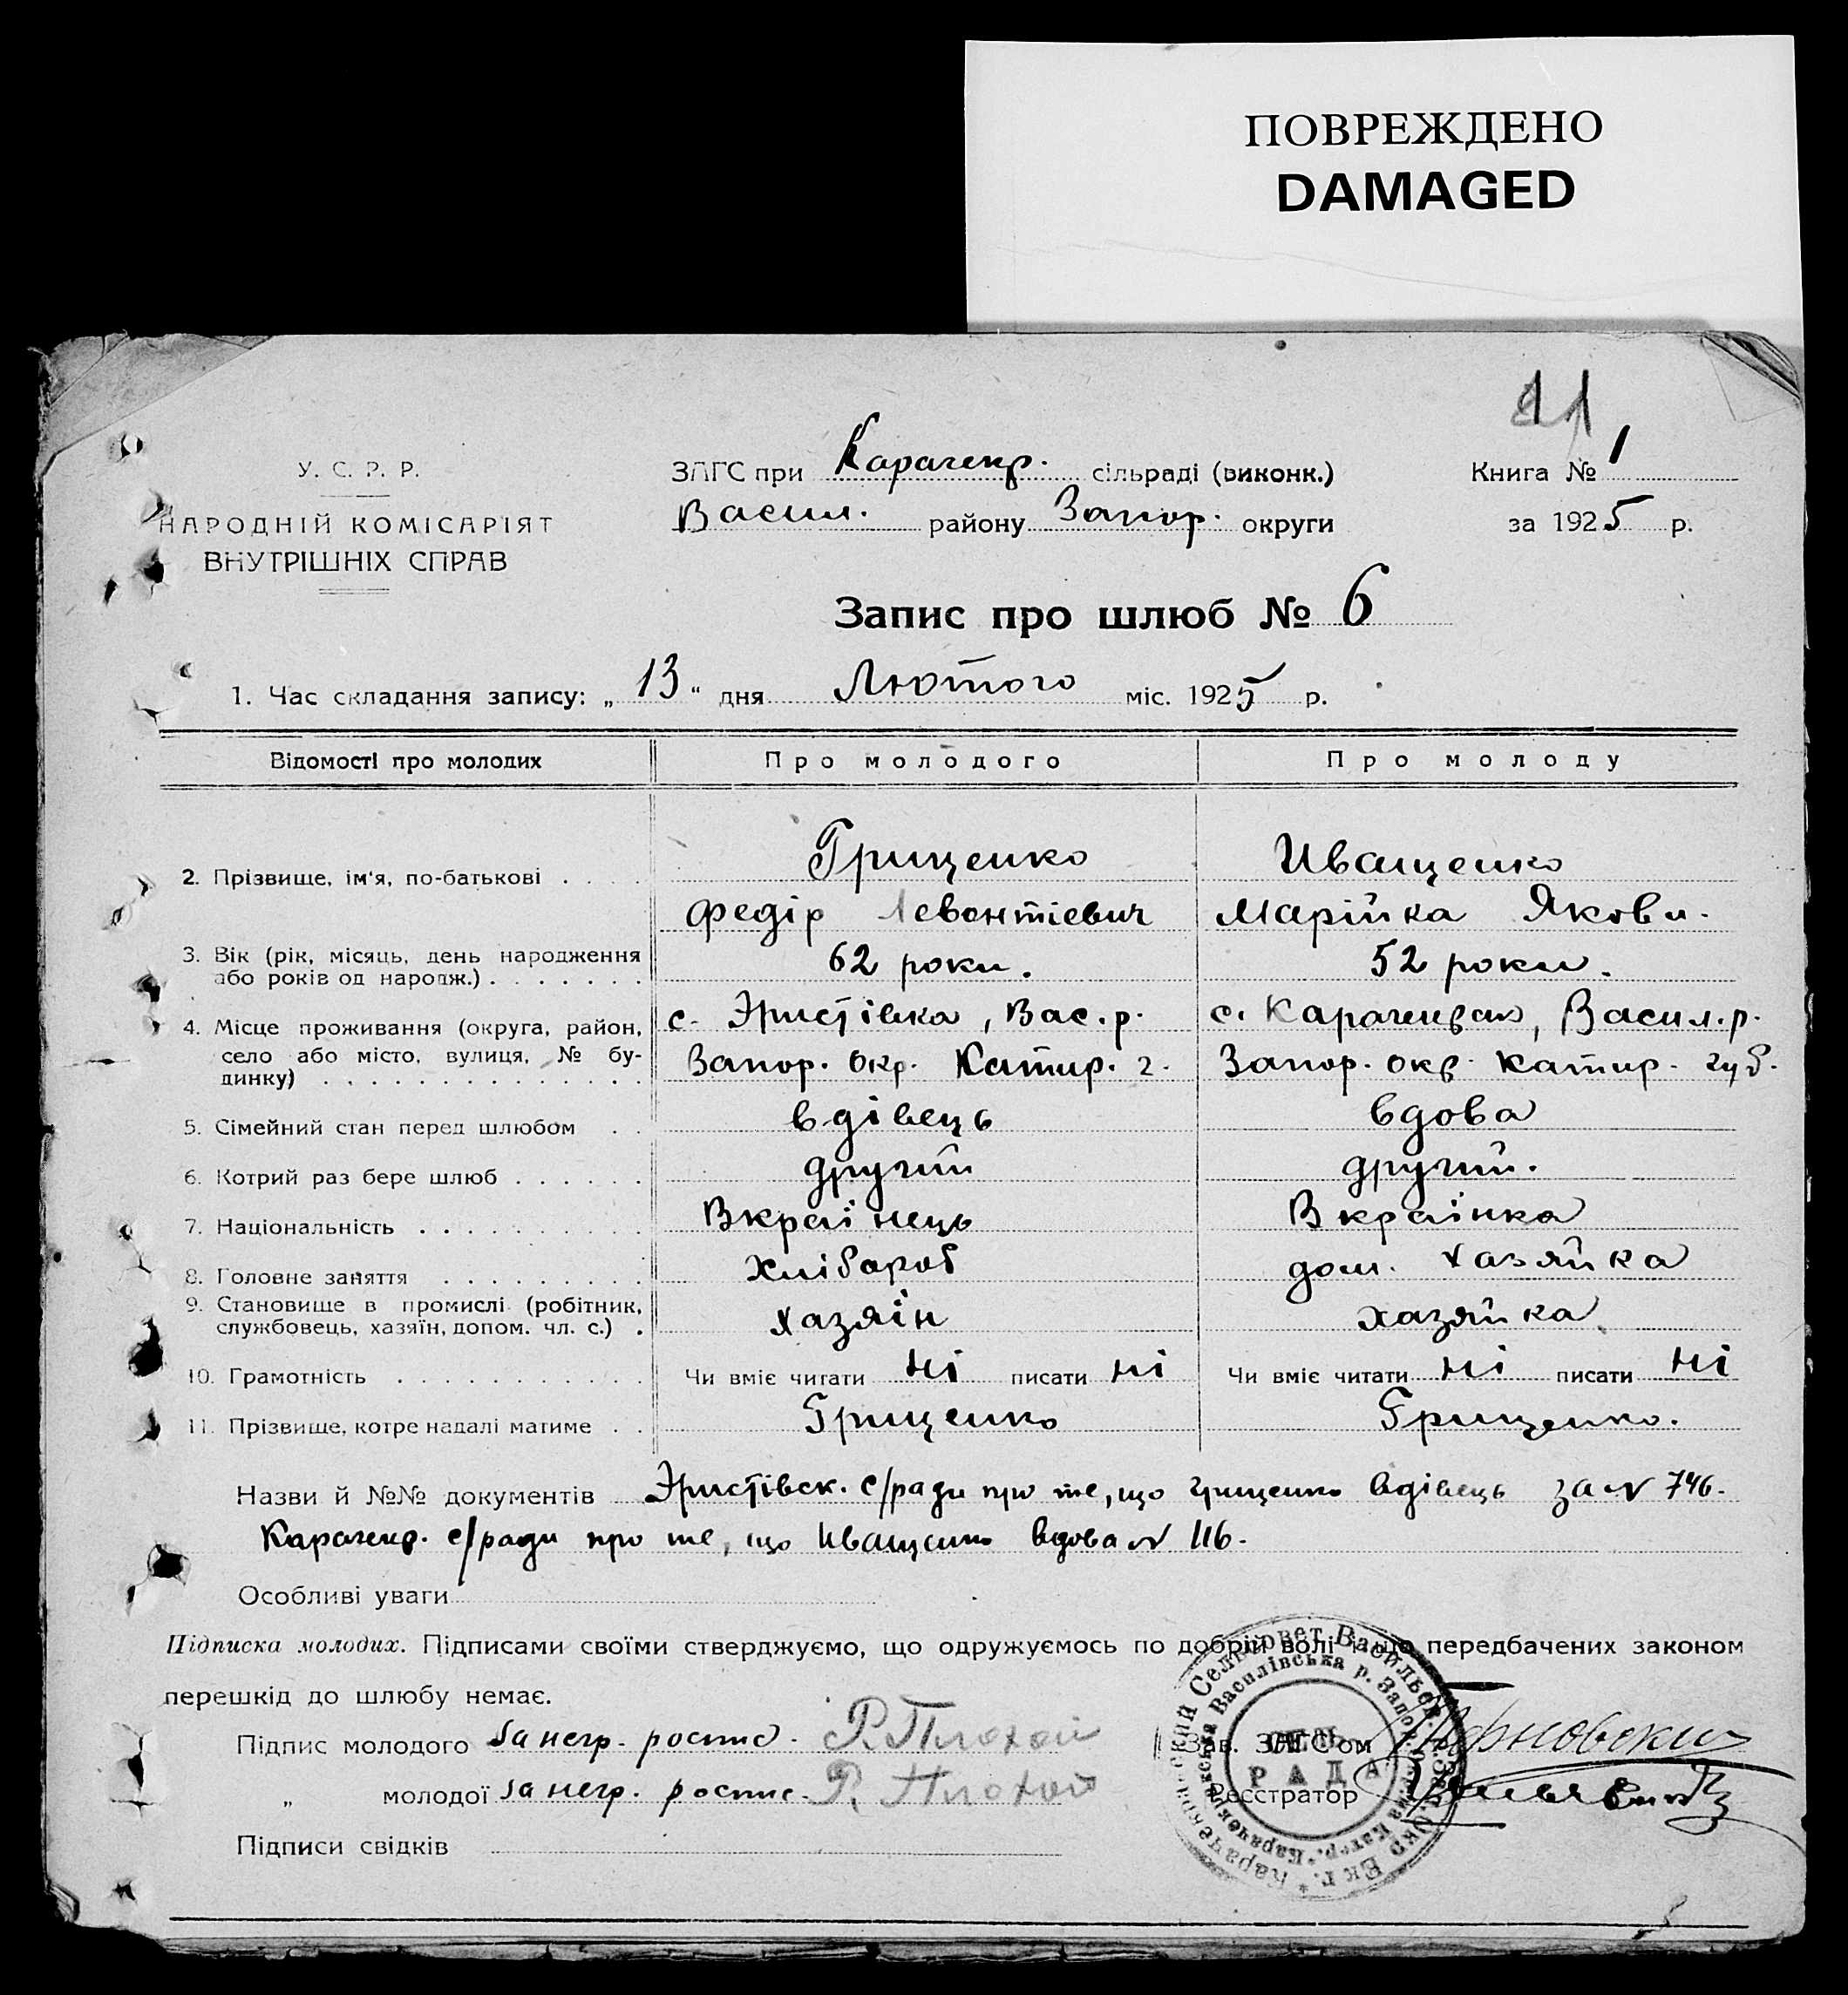 ПОВРЕЖДЕНО
DAMAGED
11
У. С. Р. Р.
НАРОДНІЙ КОМІСАРІЯТ
ВНУТРІШНІХ СПРАВ
ЗАГС при Караченкр. сільраді (виконк.)
Васил. району Запор. округи
Книга № 1
за 1925 р.
Запис про шлюб № 6
1. Час складання запису: „13“ дня Лютого міс. 1925 р.
Відомості про молодих Про молодого Про молоду
2. Прізвище, ім'я, по-батькові . . . . Грищенко Иващенко
Федір Левонтіевич Марійка Яковл.
3. Вік (рік, місяць, день народження 62 роки. 52 роки.
або років од народж.) . . . . . . .
4. Місце проживання (округа, район, с. Эристівка, Вас. р. с. Карачекрак, Васил. р.
село або місто, вулиця, № бу- Запор. окр. Катир. г. Запор. окр. Катир. губ.
динку) . . . . . . . . . . . . . .
5. Сімейний стан перед шлюбом . . вдівець вдова
6. Котрий раз бере шлюб . . . . . . другий другий.
7. Національність . . . . . . . . . . Вкраінець Вкраінка
8. Головне заняття . . . . . . . . . Хлібороб дом. хазяйка
9. Становище в промислі (робітник, хазяін хазяйка
службовець, хазяїн, допом. чл. с.) .
10. Грамотність . . . . . . . . . . . Чи вміє читати ні писати ні Чи вміє читати ні писати ні
11. Прізвище, котре надалі матиме . . Грищенко Грищенко.
Назви й №№ документів Эристівск. с/ради про те, що Грищенко вдівець за № 746.
Карачекр. с/ради про те, що Иващенко вдова № 116.
Особливі уваги
Підписка молодих. Підписами своїми стверджуємо, що одружуємось по добрій волі й що передбачених законом
перешкід до шлюбу немає.
Підпис молодого за негр. роспис. Р. Плохой
„ молодої за негр. роспис. Р. Плохой
Підписи свідків
Зав. ЗАГСом
Реєстратор
СЕЛЬ
РАДА